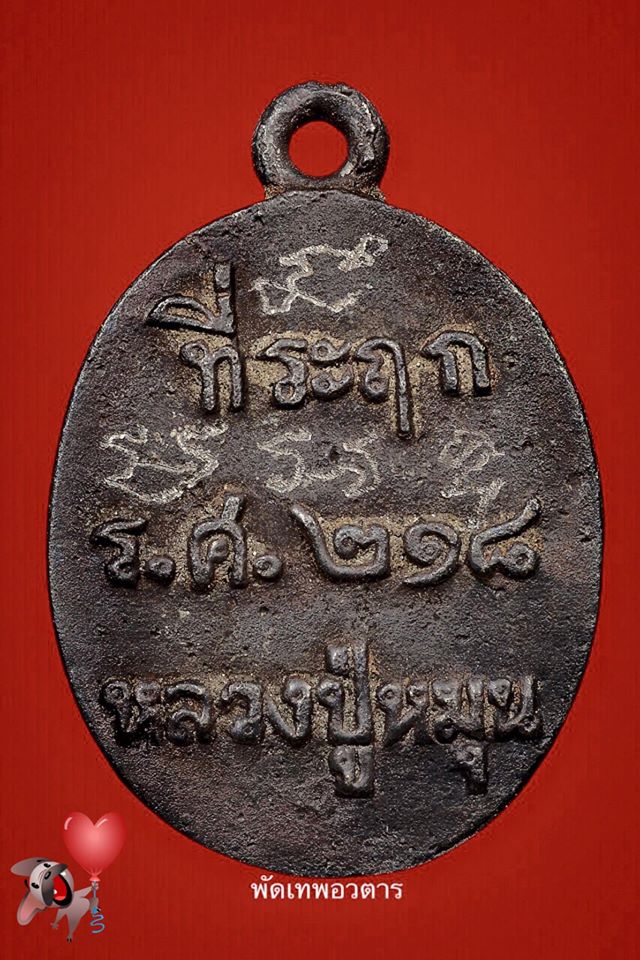 ที่ระฤก
ร.ศ. ๒๑๘
หลวงปู่หมุน
พัดเทพอวตาร